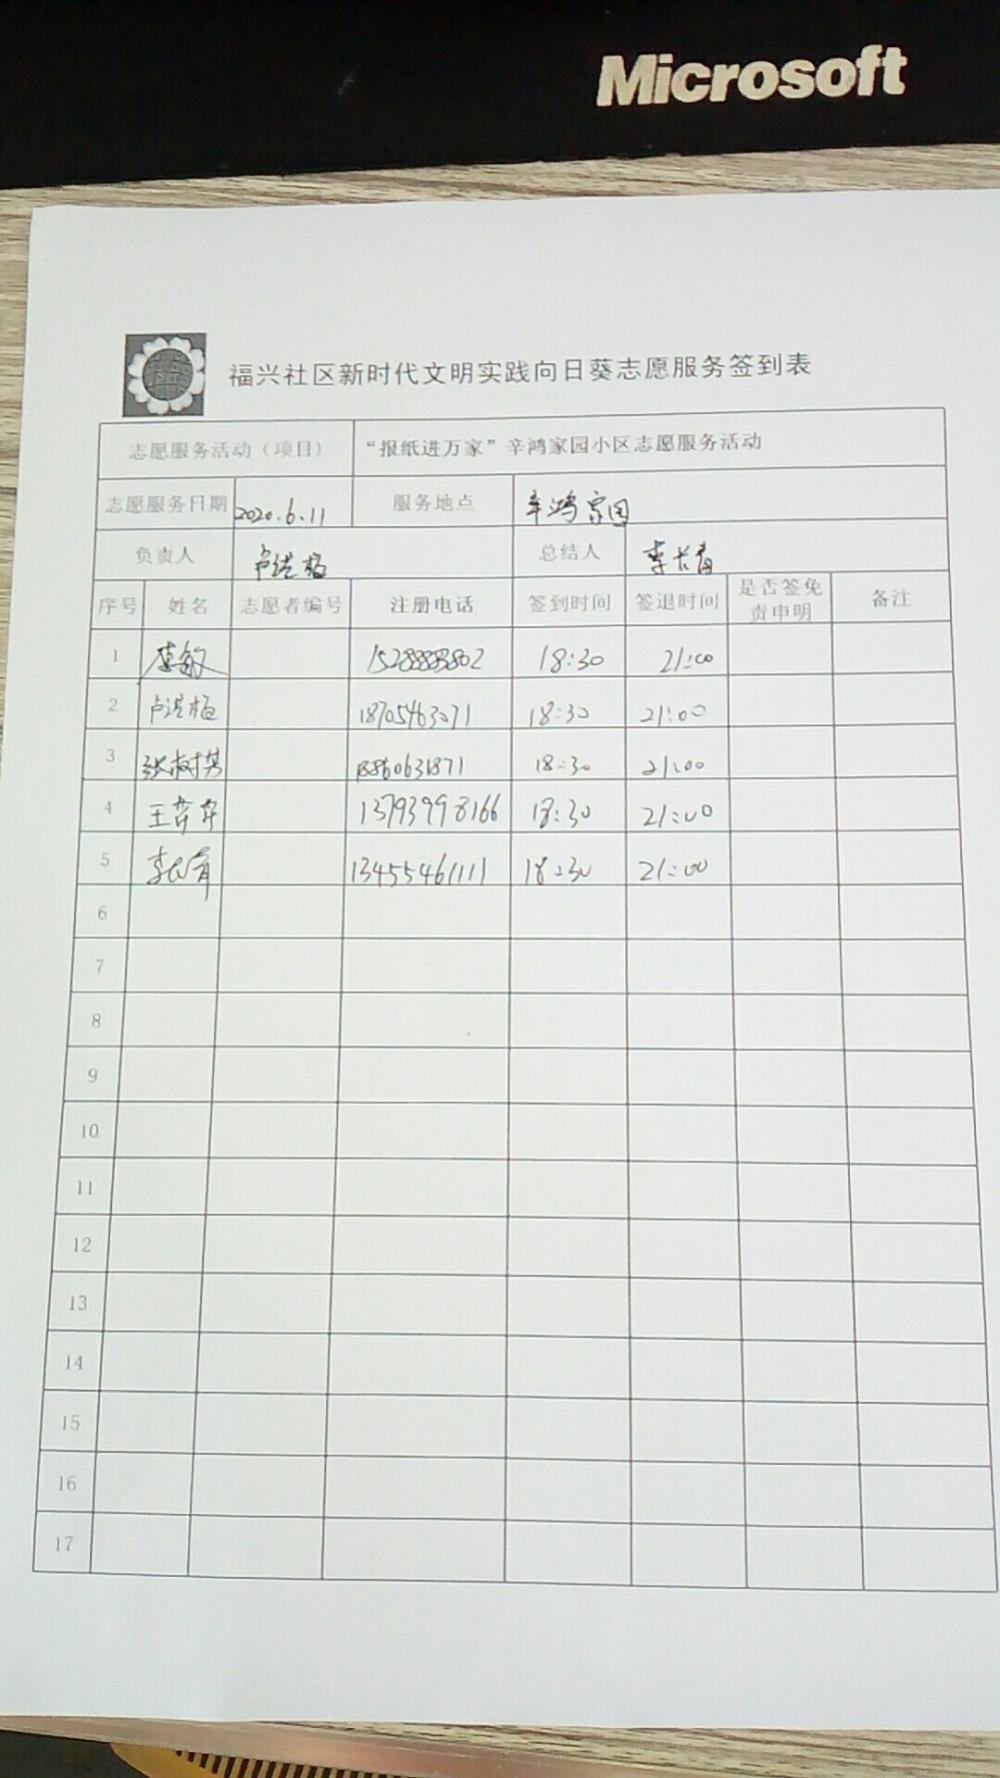 Microsoft
福兴社区新时代文明实践向日葵志愿服务签到表
志愿服务活动（项目） “报纸进万家”辛鸿家园小区志愿服务活动
志愿服务日期 2020.6.11 服务地点 辛鸿家园
负责人 卢洪梅 总结人 李长青
序号 姓名 志愿者编号 注册电话 签到时间 签退时间 是否签免责申明 备注
1 李敏 15288883802 18:30 21:00
2 卢洪梅 18705463071 18:30 21:00
3 张树芳 18:30 21:00
4 王芹芹 13793998166 18:30 21:00
5 李长青 13455461111 18:30 21:00
6
7
8
9
10
11
12
13
14
15
16
17